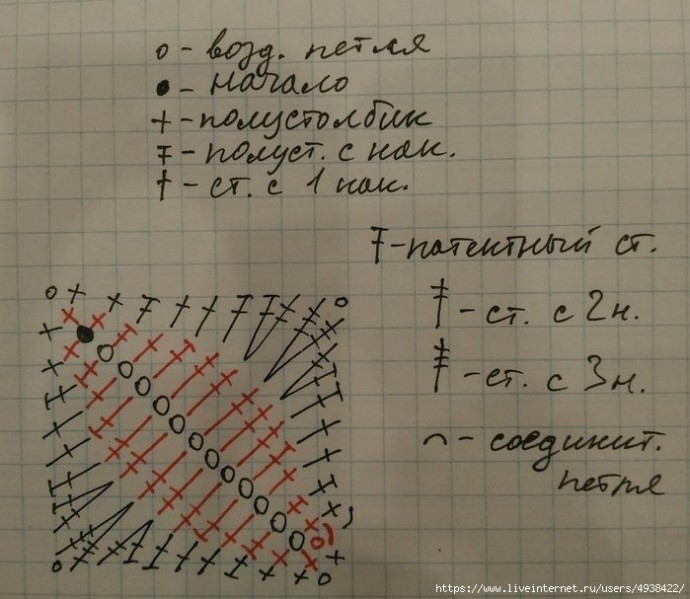 o - возд. петля
● - начало
+ - полустолбик
- полуст. с нак.
† - ст. с 1 нак.
- патентный ст.
- ст. с 2н.
- ст. с 3н.
⌒ - соединит.
петля
https://www.liveinternet.ru/users/4938422/